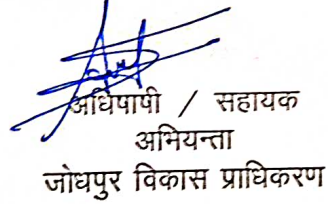 अधिपाषी / सहायक
अभियन्ता
जोधपुर विकास प्राधिकरण